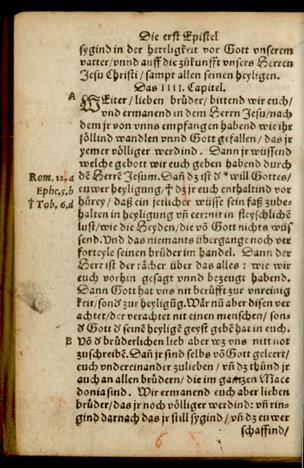 Die erst Epistel
sygind in der herrligkeit vor Gott vnserem
vatter/vnnd auff die zůkunfft vnsers Herren
Jesu Christi/ sampt allen seinen heyligen.
Das IIII. Capitel.
A
WEiter/ lieben brüder/ bittend wir euch/
vnd ermanend in dem Herrn Jesu/nach
dem jr von vnns empfangen habend wie ihr
söllind wandlen vnnd Gott gefallen/ das jr
yemer völliger werdind. Dann jr wüssend
welche gebott wir euch geben habend durch
Rom. 12.a
dē Herrē Jesum. Dañ dz ist dʼ * will Gottes/
Ephe.5.b
euwer heyligung/ † dz jr euch enthaltind vor
† Tob. 6.d
hůrey/ daß ein jetlicher wüsse sein faß zube-
halten in heyligung vñ eer: nit in fleyschlichē
lust/ wie die Heyden/ die vō Gott nichts wüs
send. Vnd das niemants übergange noch ver
forteyle seinen brüder im handel. Dann der
Herr ist der rächer über das alles: wie wir
euch vorhin gesagt vnnd bezeugt habend.
Dann Gott hat vns nit berüfft zur vnreinig
keit/ sondʼ zur heyligūg. Wär nũ aber disen ver
achtet/ der verachtet nit einen menschen/ son-
dʼ Gott dʼ seinē heyligē geyst gebē hat in euch.
B
Võ dʼ brüderlichen lieb aber wz vns nitt not
zuschreibē. Dañ jr sind selbs võ Gott geleert/
euch vndereinander zulieben/ vñ dz thünd jr
auch an allen brüdern/ die im gantzen Mace
donia sind. Wir ermanend euch aber lieben
brüder/ das jr noch völliger werdind: vñ rin-
gind darnach das jr still sygind/ vñ dz euwer
schaffind/